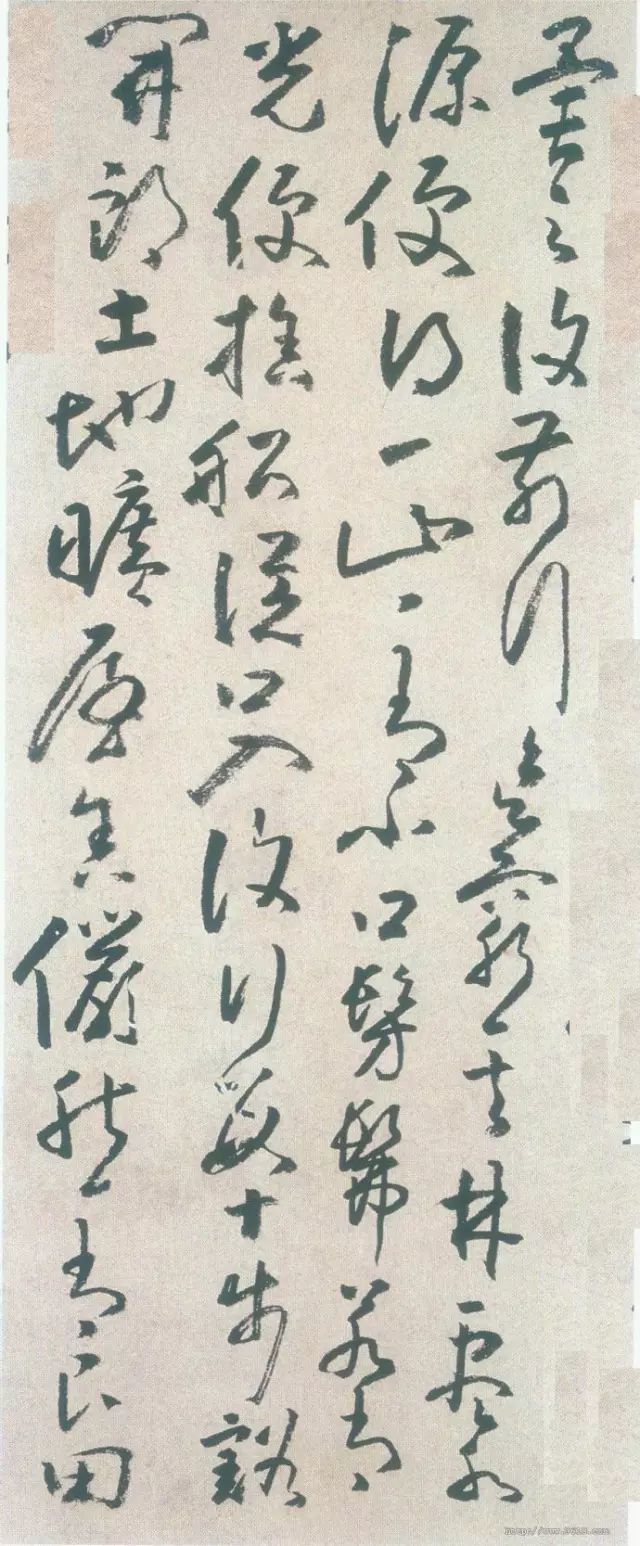 異之復前行欲窮其林盡水
源便得一山々有小口髣髴若有
光便捨船從口入復行數十步豁
開朗土地曠屋舍儼然有良田